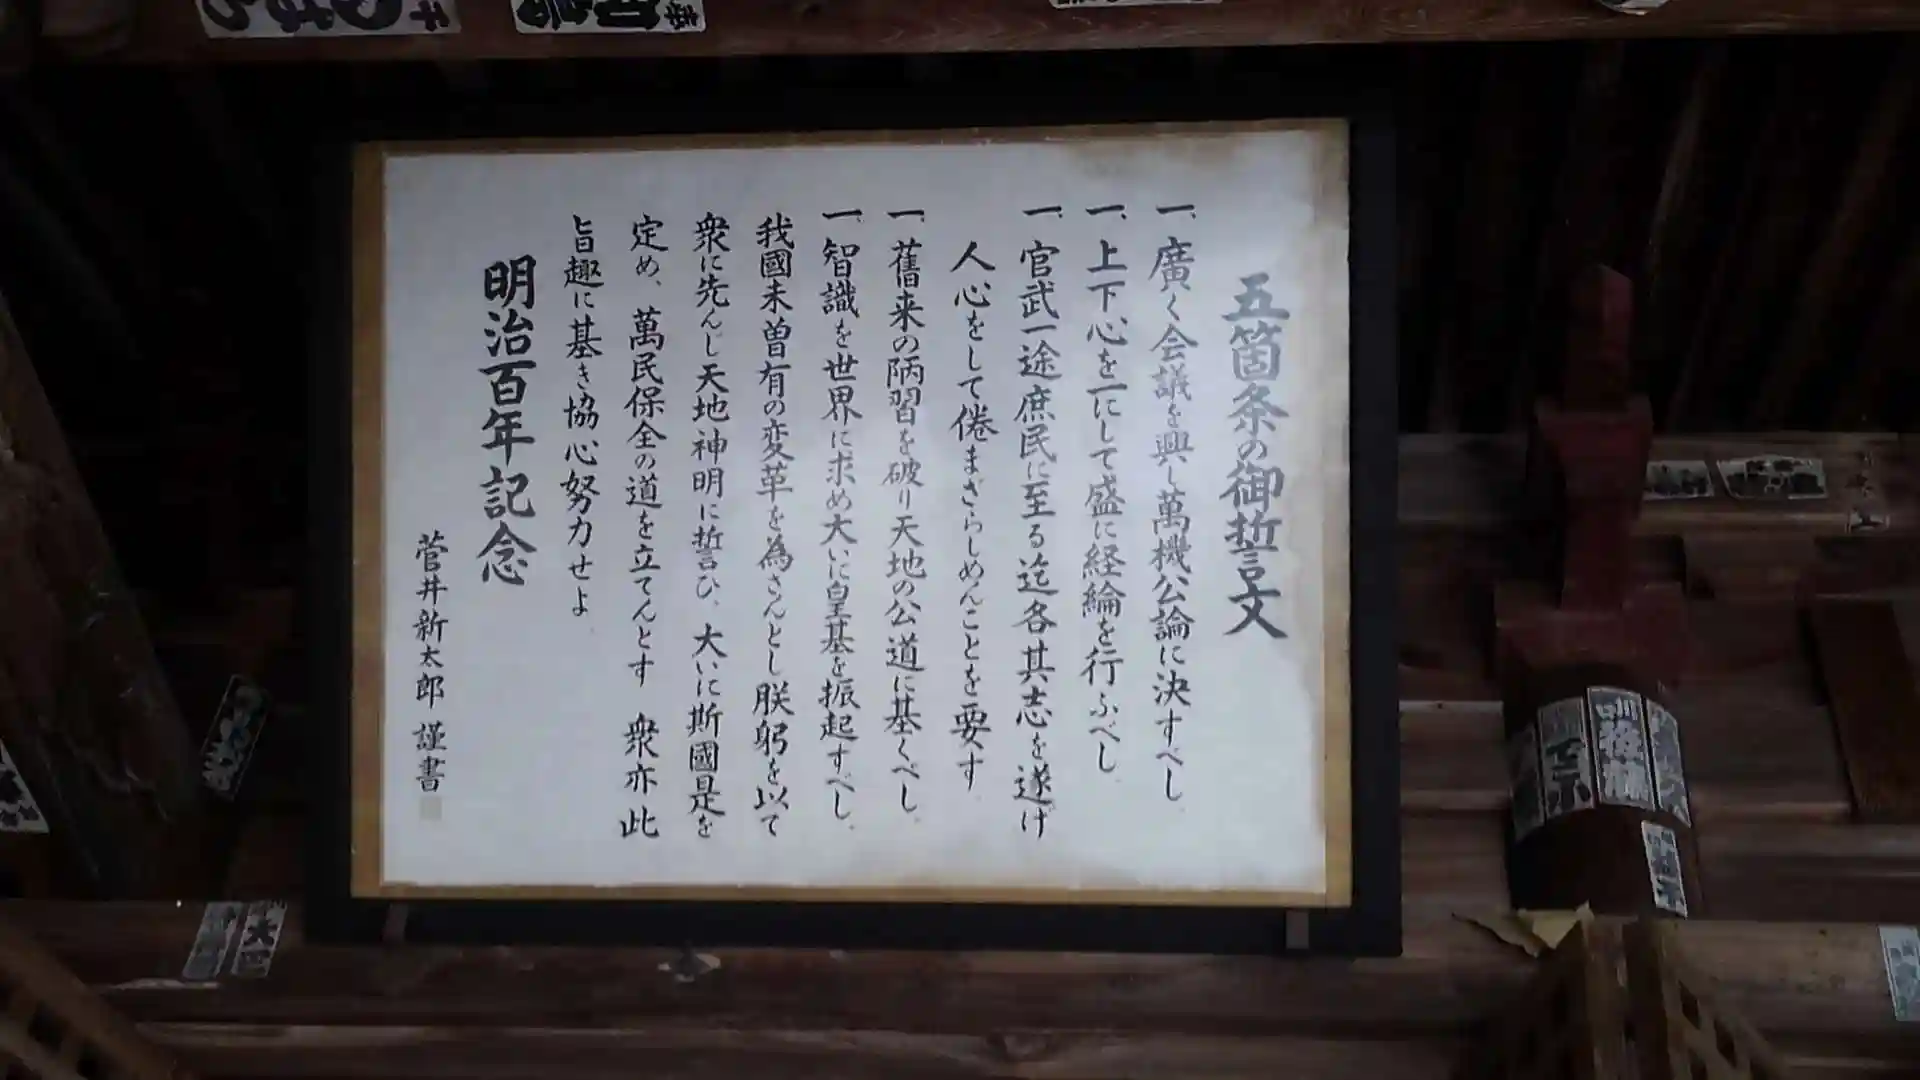 五箇条の御誓文
一、廣く会議を興し萬機公論に決すべし
一、上下心を一にして盛に経綸を行ふべし
一、官武一途庶民に至る迄各其志を遂げ
人心をして倦まざらしめんことを要す
一、舊来の陋習を破り天地の公道に基くべし
一、智識を世界に求め大いに皇基を振起すべし
我國未曽有の変革を為さんとし朕躬を以て
衆に先んじ天地神明に誓ひ、大いに斯國是を
定め、萬民保全の道を立てんとす 衆亦此
旨趣に基き協心努力せよ
明治百年記念
菅井新太郎 謹書